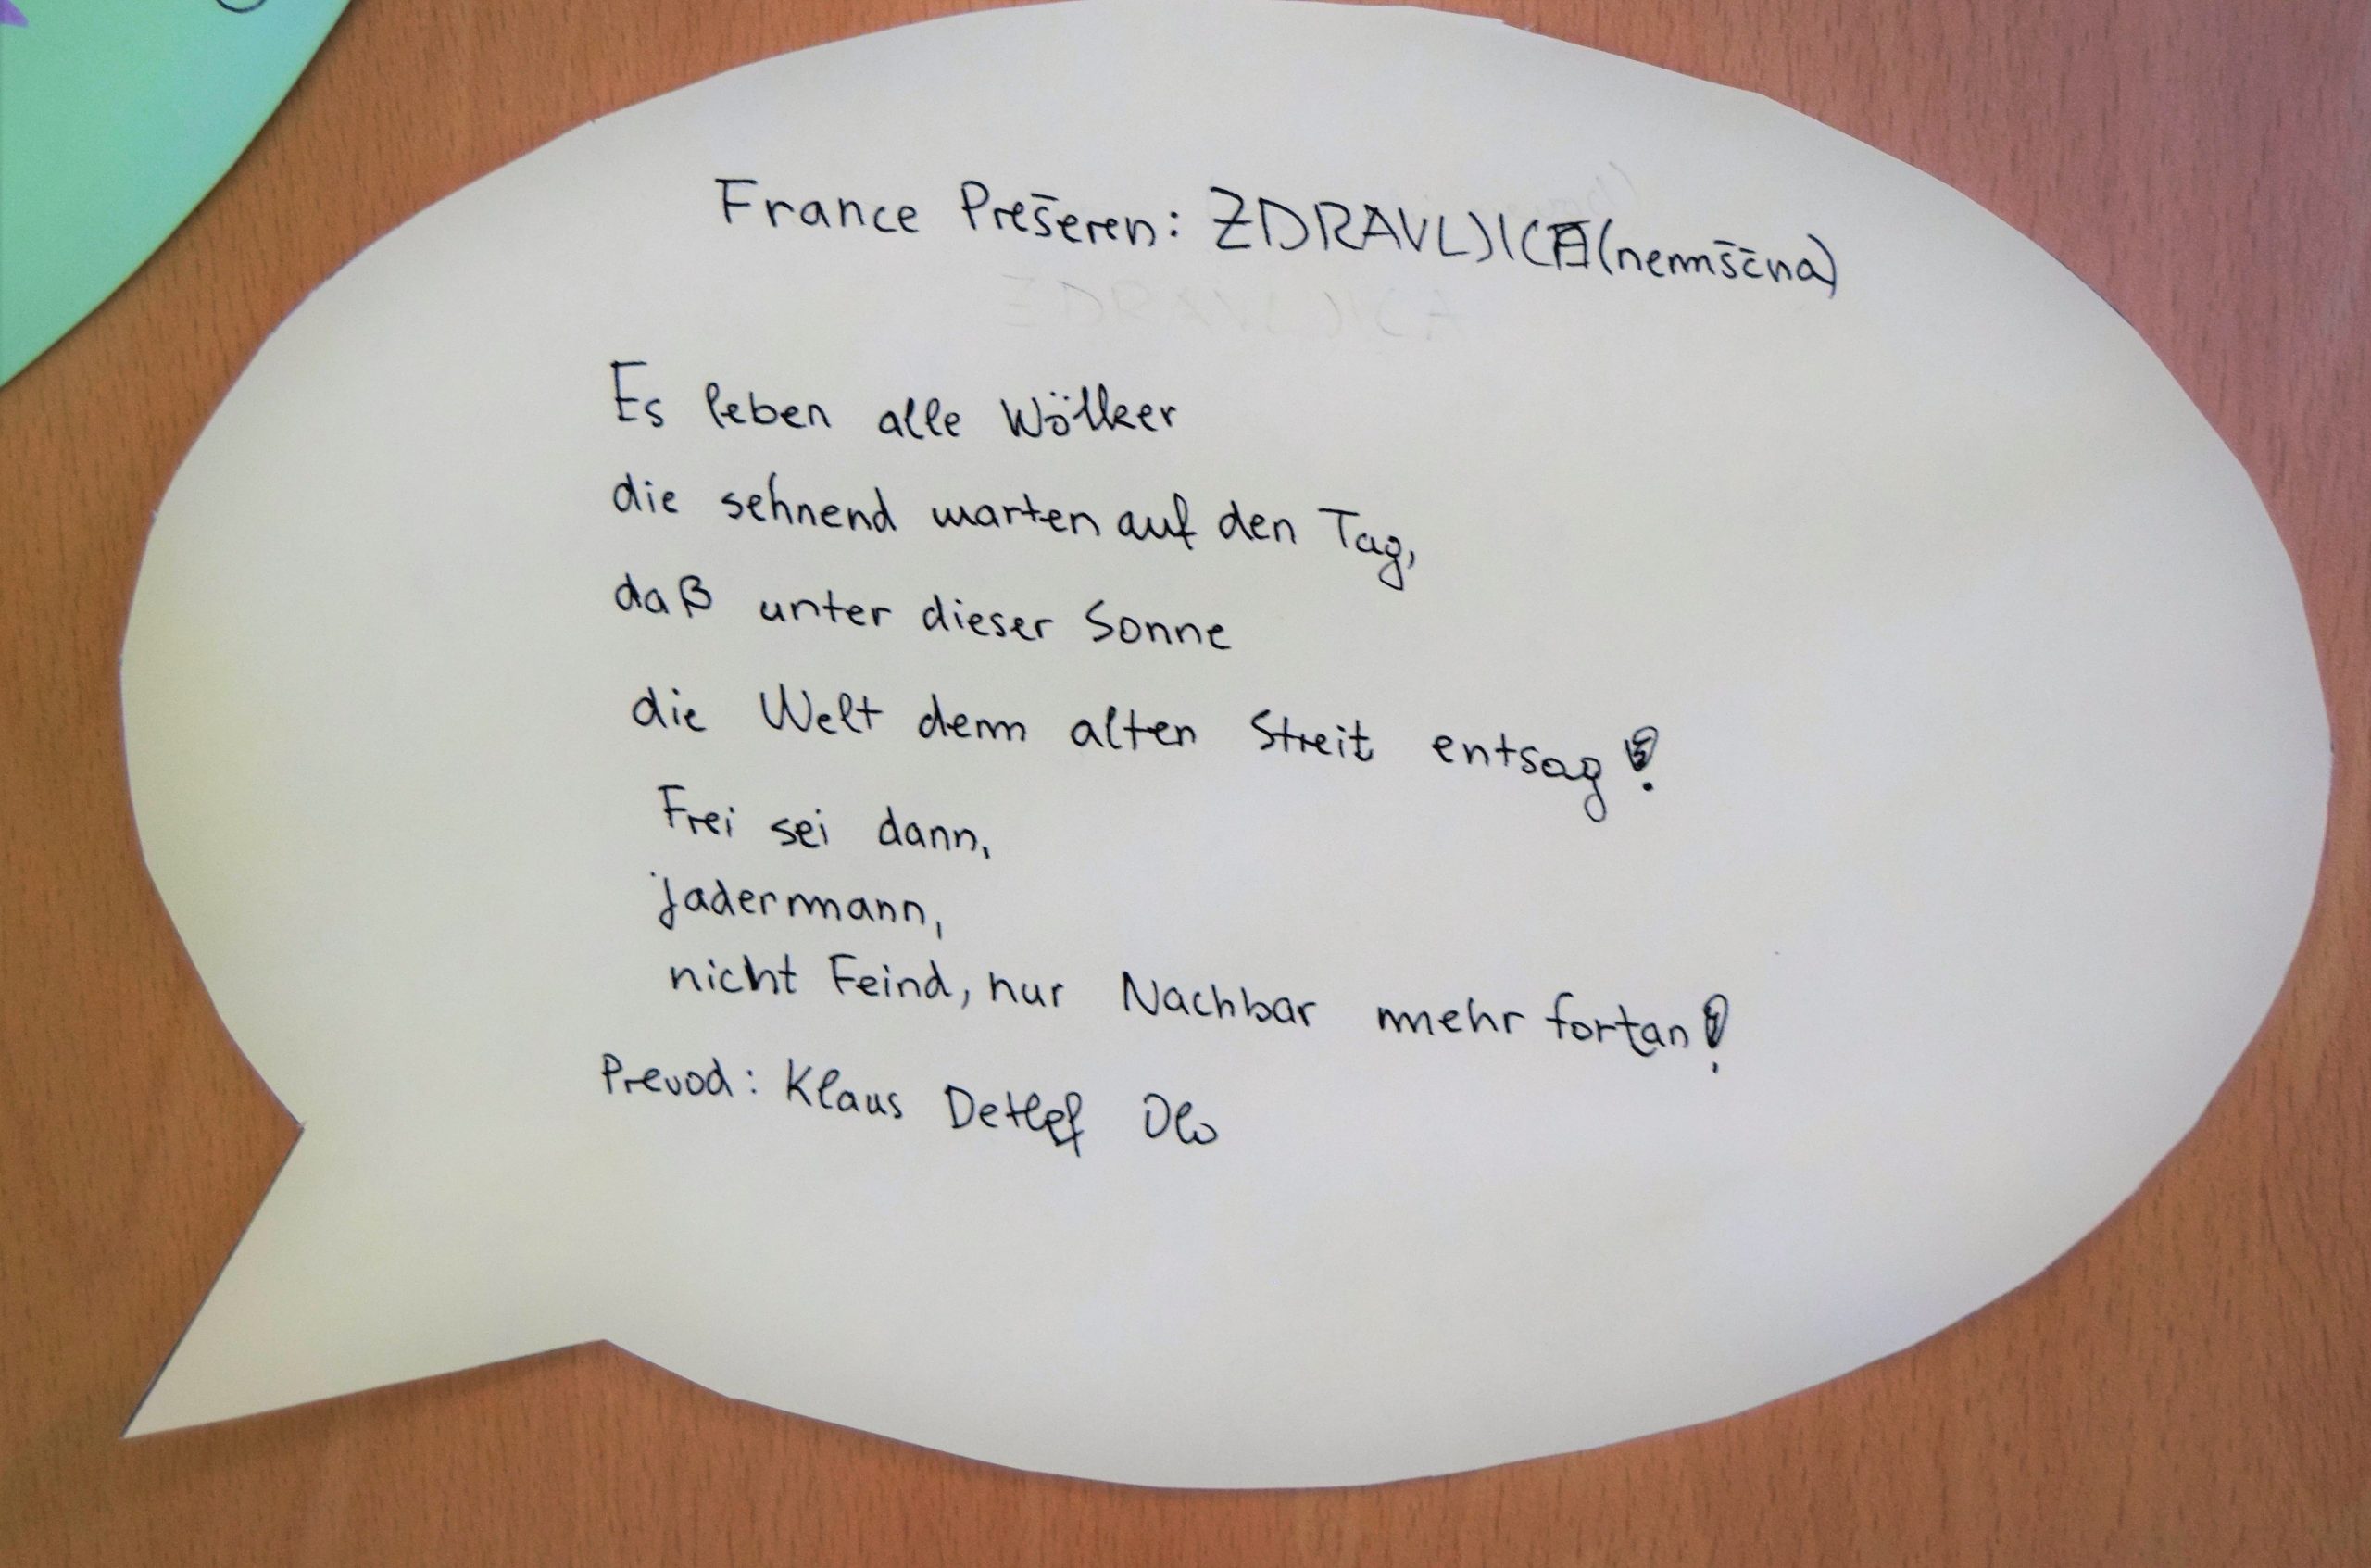 France Prešeren: ZDRAVLJICA (nemščna)
Es leben alle Wölker
die sehnend warten auf den Tag,
daß unter dieser Sonne
die Welt dem alten Streit entsag!
Frei sei dann,
jadermann,
nicht Feind, nur Nachbar mehr fortan!
Prevod: Klaus Detlef Olo